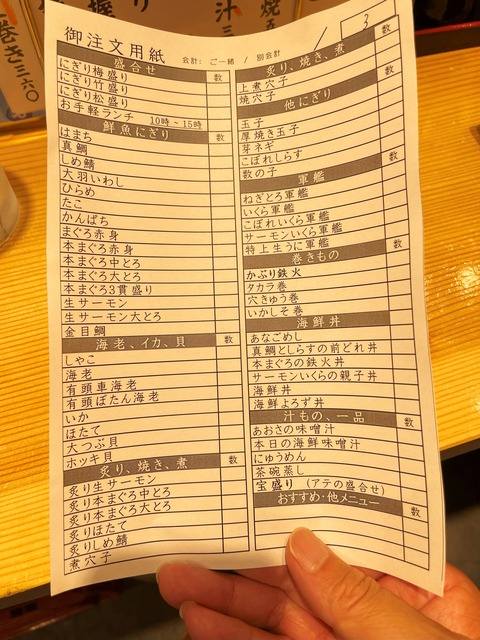 御注文用紙
会計: ご一緒 / 別会計
3
盛合せ 数
にぎり梅盛り
にぎり竹盛り
にぎり松盛り
お手軽ランチ 10時～15時
鮮魚にぎり 数
はまち
真鯛
しめ鯖
大羽いわし
ひらめ
たこ
かんぱち
まぐろ赤身
本まぐろ赤身
本まぐろ中とろ
本まぐろ大とろ
本まぐろ3貫盛り
生サーモン
生サーモン大とろ
金目鯛
海老、イカ、貝 数
しゃこ
海老
有頭車海老
有頭ぼたん海老
いか
ほたて
大つぶ貝
ホッキ貝
炙り、焼き、煮 数
炙り生サーモン
炙り本まぐろ中とろ
炙り本まぐろ大とろ
炙りほたて
炙りしめ鯖
煮穴子
炙り、焼き、煮 数
上煮穴子
焼穴子
他にぎり 数
玉子
厚焼き玉子
芽ネギ
こぼれしらす
数の子
軍艦 数
ねぎとろ軍艦
いくら軍艦
こぼれいくら軍艦
サーモンいくら軍艦
特上生うに軍艦
巻きもの 数
かぶり鉄火
タカラ巻
穴きゅう巻
いかしそ巻
海鮮丼
あなごめし
真鯛としらすの前どれ丼
本まぐろの鉄火丼
サーモンいくらの親子丼
海鮮丼
海鮮よろず丼
汁もの、一品 数
あおさの味噌汁
本日の海鮮味噌汁
にゅうめん
茶碗蒸し
宝盛り (アテの盛合せ)
おすすめ・他メニュー 数